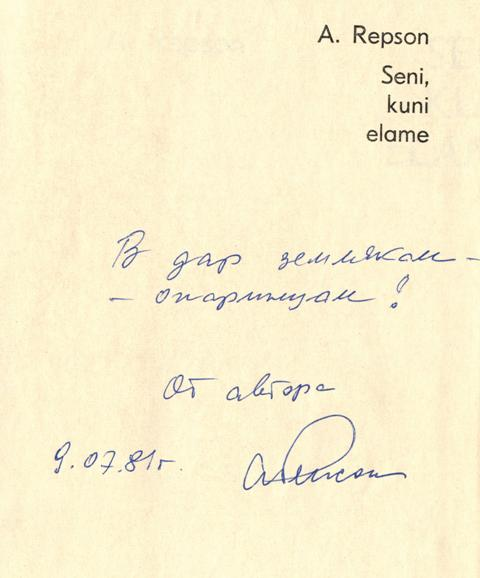 A. Repson
Seni,
kuni
elame
В дар землякам -
- опаринцам!
От автора
9.07.81г.
АРепсон